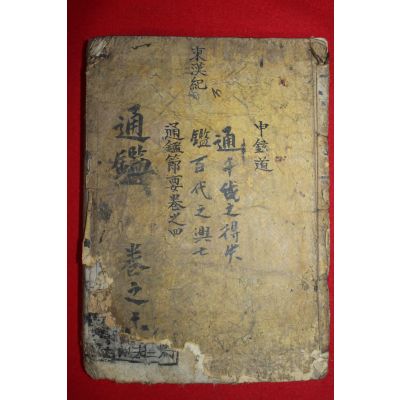 申錥道
通千代之得失
鑑百代之興亡
東漢紀
通鑑節要卷之四
通鑑
卷之